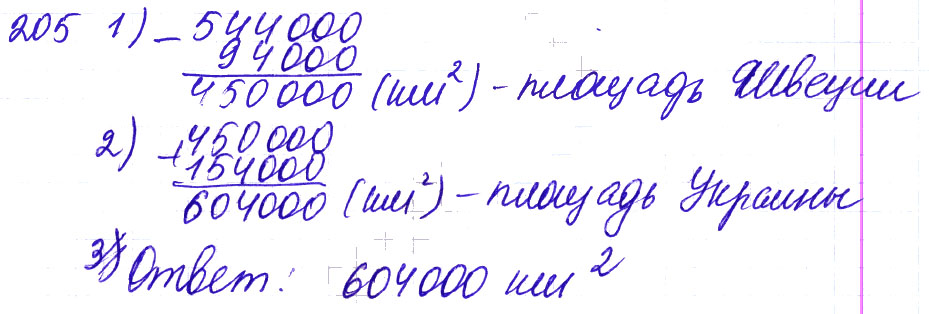 205 1) - 544000
94000
450000 (км²) - площадь Швеции
2) + 450000
154000
604000 (км²) - площадь Украины
Ответ: 604000 км²